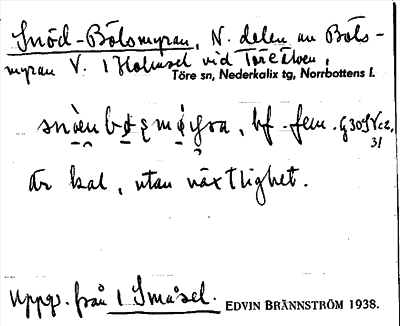 Snöd-Bölsmyran, N. delen av Böls-
myran V. i Holmsel vid Töreälven.
Töre sn, Nederkalix tg, Norrbottens l.
bf. fem. G30SVc2,
31
är kal, utan växtlighet.
Uppg. från i Småsel. EDVIN BRÄNNSTRÖM 1938.